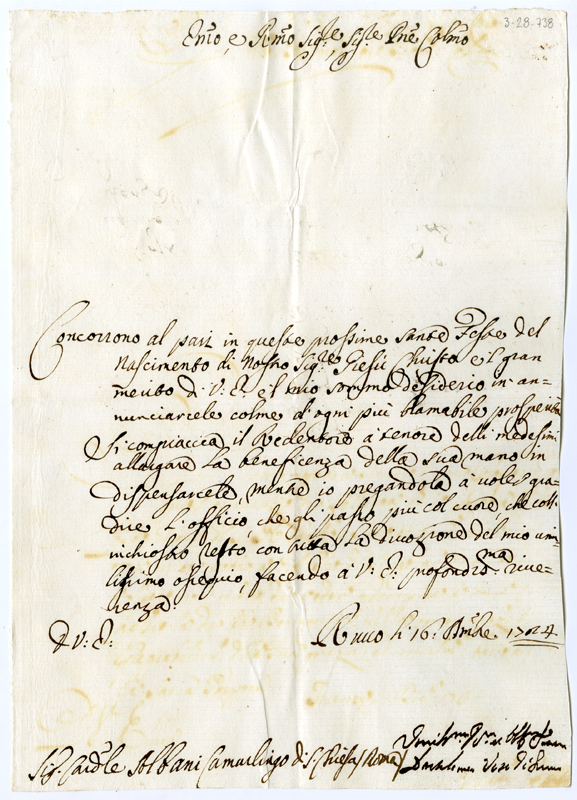 3-28-738
Em̃o, e Rm̃o Sig.re, Sig.re Pñe Colm̃o
Concorrono al pari in queste prossime sante Feste del
Nascimento di Nostro Sig.re Giesù Christo e il gran
merito di V: E: e'l mio sommo desiderio in an-
nunciarcele colme d'ogni più bramabile prosperità
Si compiaccia il Redentore à tenore delli medesimi
allargare la beneficenza della sua mano in
dispensarcele, mentre io pregandola à voler gra-
dire l'officio, che gli passo più col cuore che coll'
inchiostro resto con tutta la divozione del mio umi-
lissimo ossequio, facendo à V: E: profondis.ma rive-
renza.
D V: E:
li 16: Xmbre 1724
Sig: Card.le Albani Camarlingo di S. Chiesa / Roma /